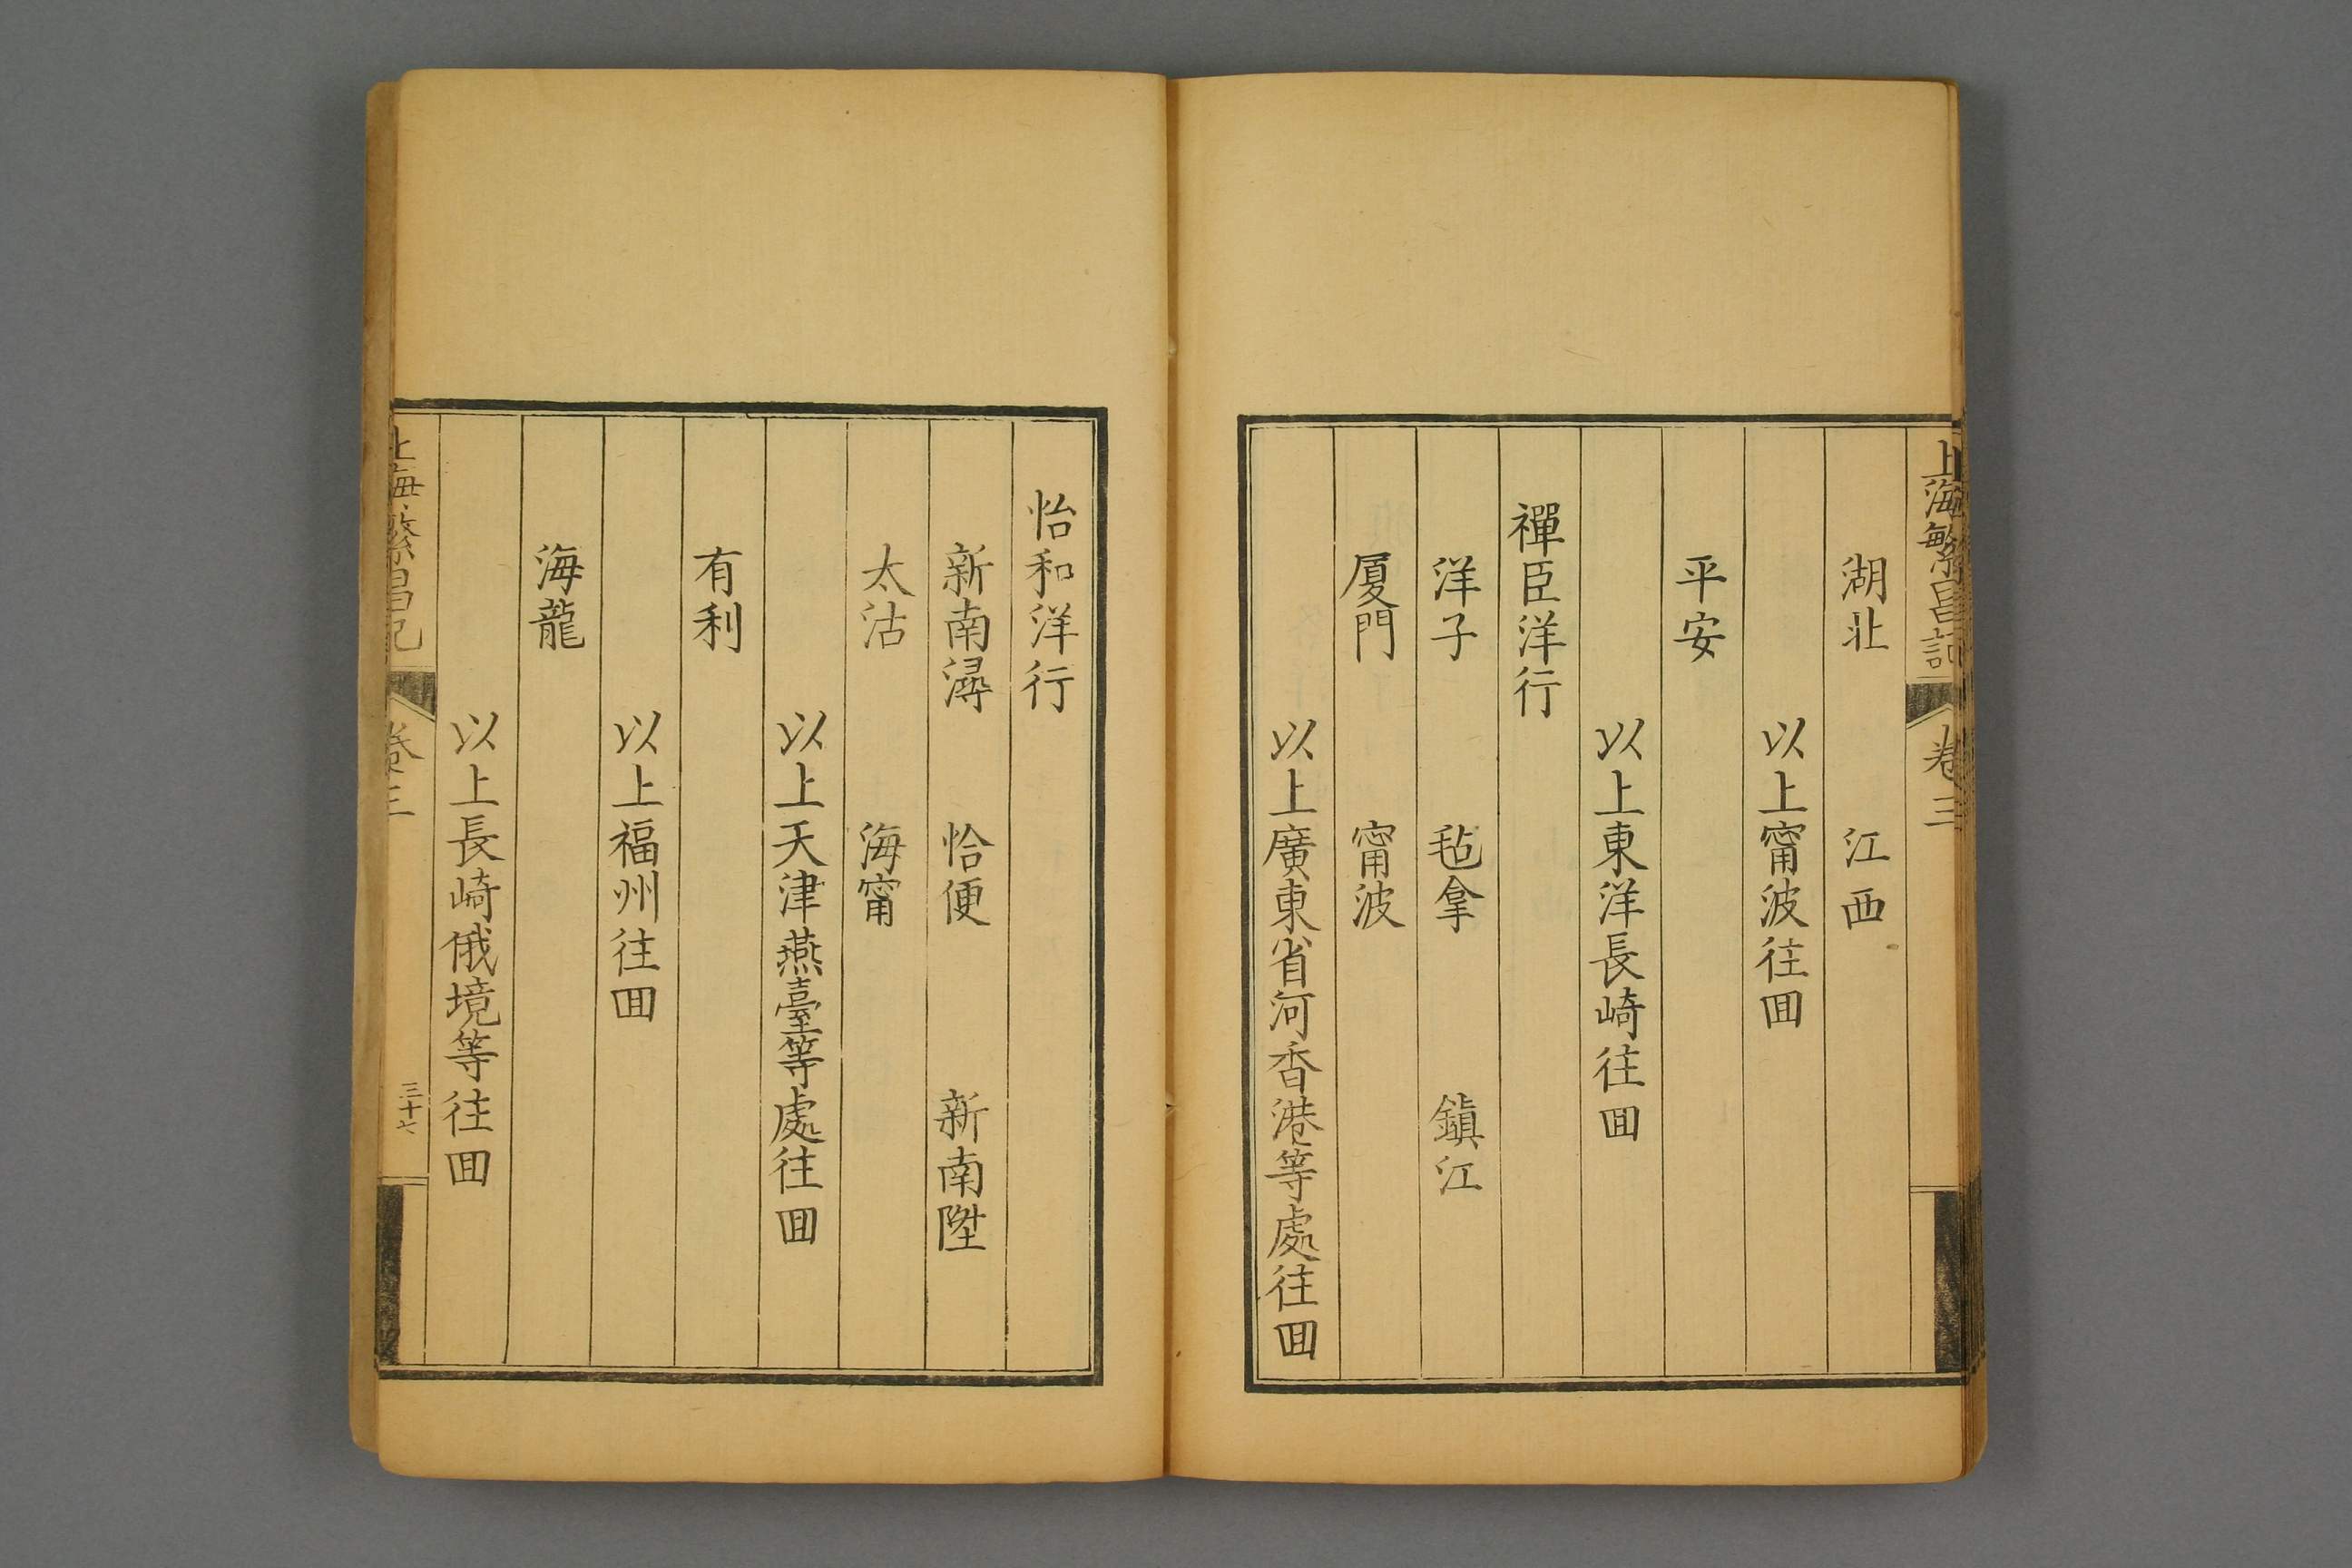 上海繁昌記 卷三
湖北 江西
以上甯波往囬
平安
以上東洋長崎往囬
禪臣洋行
洋子 毡拿 鎮江
厦門 甯波
以上廣東省河香港等處往囬
怡和洋行
新南潯 恰便 新南陞
太沽 海甯
以上天津燕臺等處往囬
有利
以上福州往囬
海龍
以上長崎俄境等往囬
上海繁昌記 卷三 三十七